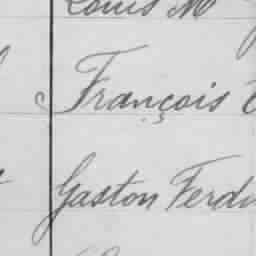 Louis M
François
Gaston Ferdi